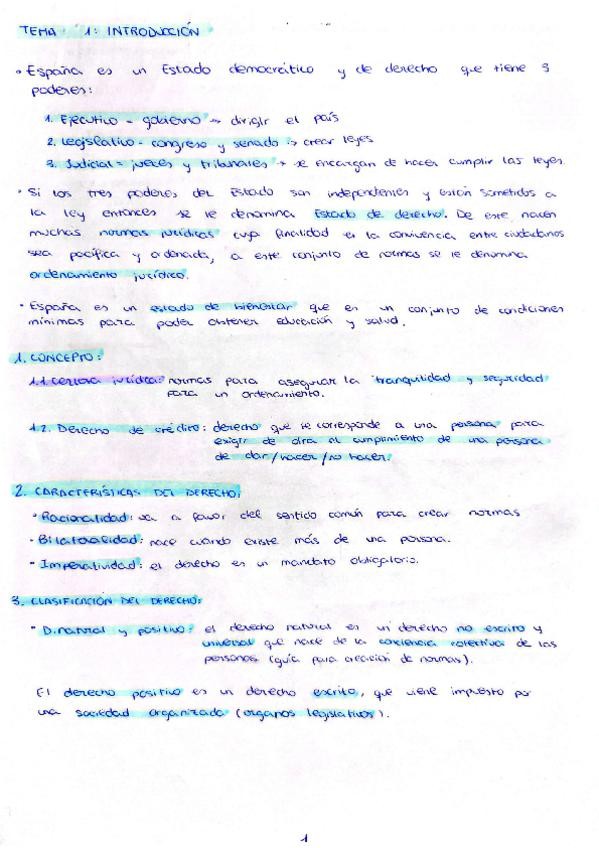 TEMA 1: INTRODUCCIÓN
• España es un Estado democrático y de derecho que tiene 3
poderes:
1. Ejecutivo = gobierno → dirigir el país
2. Legislativo = congreso y senado → crear leyes
3. Judicial = jueces y tribunales → se encargan de hacer cumplir las leyes.
• Si los tres poderes del Estado son independientes y están sometidos a
la ley entonces se le denomina Estado de derecho. De este nacen
muchas normas jurídicas cuya finalidad es la convivencia entre ciudadanos
sea pacífica y ordenada, a este conjunto de normas se le denomina
ordenamiento jurídico.
• España es un estado de bienestar que es un conjunto de condiciones
mínimas para poder obtener educación y salud.
1. CONCEPTO:
1.1 Certeza jurídica: normas para asegurar la tranquilidad y seguridad
para un ordenamiento.
1.2. Derecho de crédito: derecho que se corresponde a una persona para
exigir de otra el cumplimiento de una persona
de dar/hacer/no hacer.
2. CARACTERÍSTICAS DEL DERECHO:
• Racionalidad: va a favor del sentido común para crear normas
• Bilateralidad: nace cuando existe más de una persona.
• Imperatividad: el derecho es un mandato obligatorio.
3. CLASIFICACIÓN DEL DERECHO:
• D. natural y positivo: el derecho natural es un derecho no escrito y
universal que nace de la conciencia colectiva de las
personas (guía para creación de normas).
El derecho positivo es un derecho escrito, que viene impuesto por
una sociedad organizada (órganos legislativos).
1